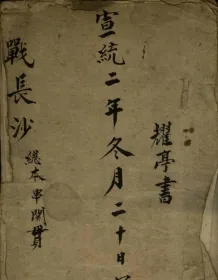 耀亭書
宣統二年冬月二十日
戰長沙
總本串關貫